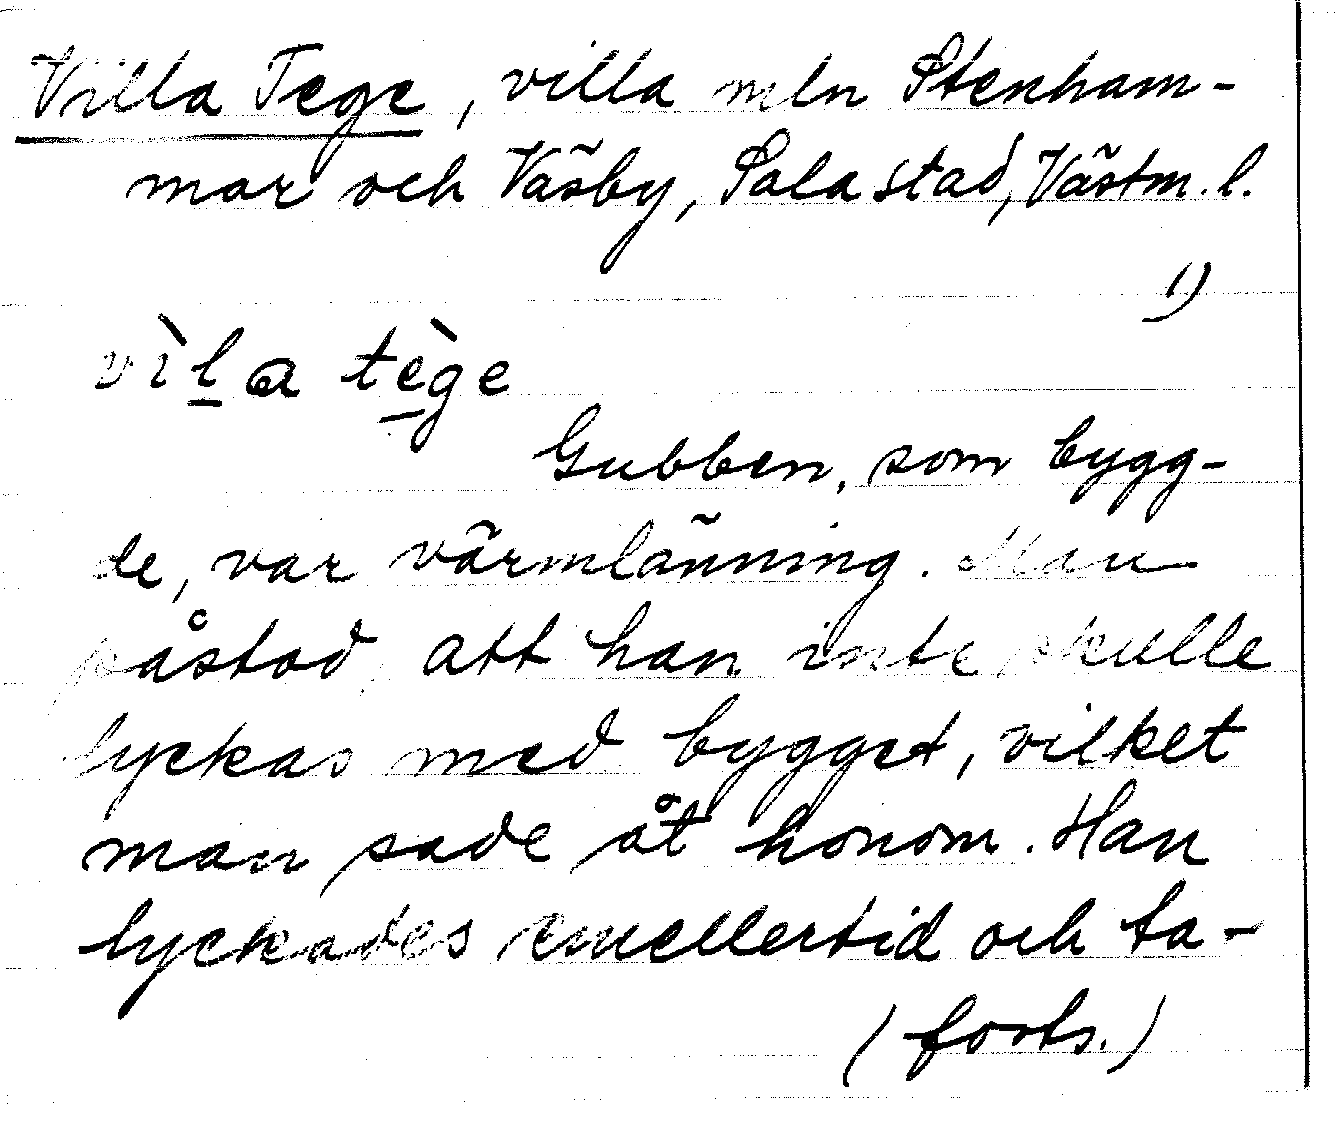 Villa Tege, villa mln Stenham-
mar och Väsby, Sala stad, Västm. l.
1)
vìl̲a tè̲ge
Gubben, som bygg-
de, var värmlänning. Man
påstod, att han inte skulle
lyckas med bygget, vilket
man sade åt honom. Han
lyckades emellertid och ta-
(forts.)